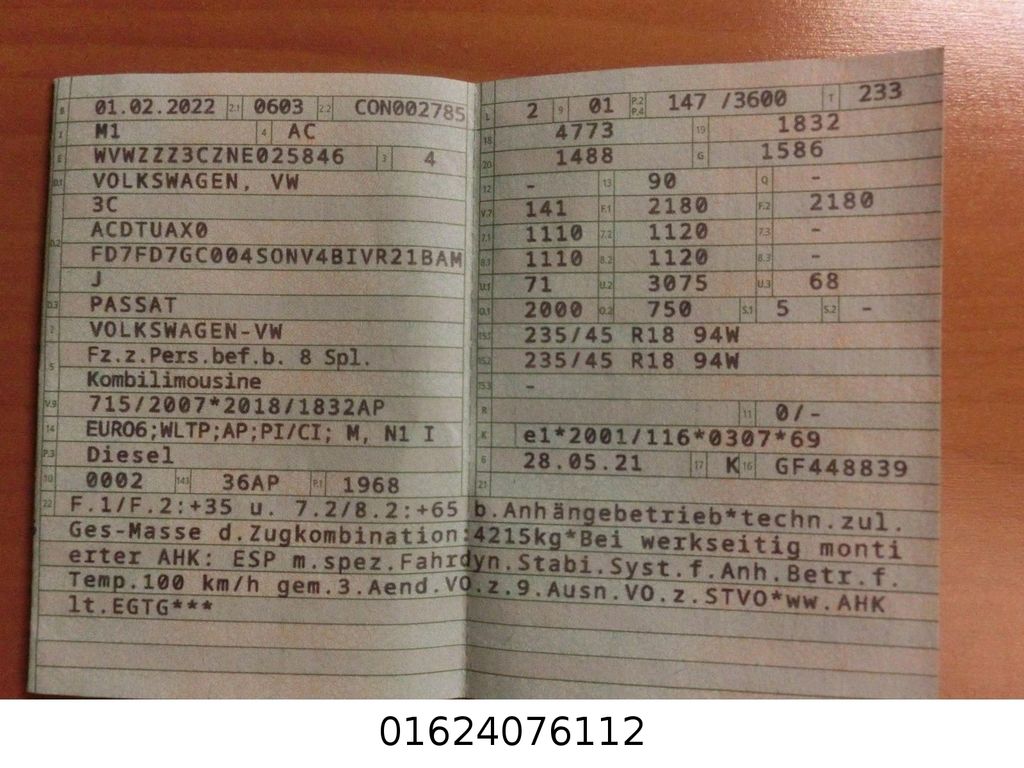 B 01.02.2022 2.1 0603 2.2 CON002785
J M1 4 AC
E WVWZZZ3CZNE025846 3 4
D.1 VOLKSWAGEN, VW
3C
D.2 ACDTUAX0
FD7FD7GC004SONV4BIVR21BAM
J
D.3 PASSAT
2 VOLKSWAGEN-VW
5 Fz.z.Pers.bef.b. 8 Spl.
Kombilimousine
V.9 715/2007*2018/1832AP
14 EURO6;WLTP;AP;PI/CI; M, N1 I
P.3 Diesel
10 0002 14.1 36AP P.1 1968
L 2 9 01 P.2 P.4 147 /3600 T 233
18 4773 19 1832
20 1488 G 1586
12 - 13 90 Q -
V.7 141 F.1 2180 F.2 2180
7.1 1110 7.2 1120 7.3 -
8.1 1110 8.2 1120 8.3 -
U.1 71 U.2 3075 U.3 68
O.1 2000 O.2 750 S.1 5 S.2 -
15.1 235/45 R18 94W
15.2 235/45 R18 94W
15.3 -
R 11 0/-
K e1*2001/116*0307*69
6 28.05.21 17 K 16 GF448839
21
22 F.1/F.2:+35 u. 7.2/8.2:+65 b.Anhängebetrieb*techn.zul.
Ges-Masse d.Zugkombination:4215kg*Bei werkseitig monti
erter AHK: ESP m.spez.Fahrdyn.Stabi.Syst.f.Anh.Betr.f.
Temp.100 km/h gem.3.Aend.VO.z.9.Ausn.VO.z.STVO*ww.AHK
lt.EGTG***
01624076112